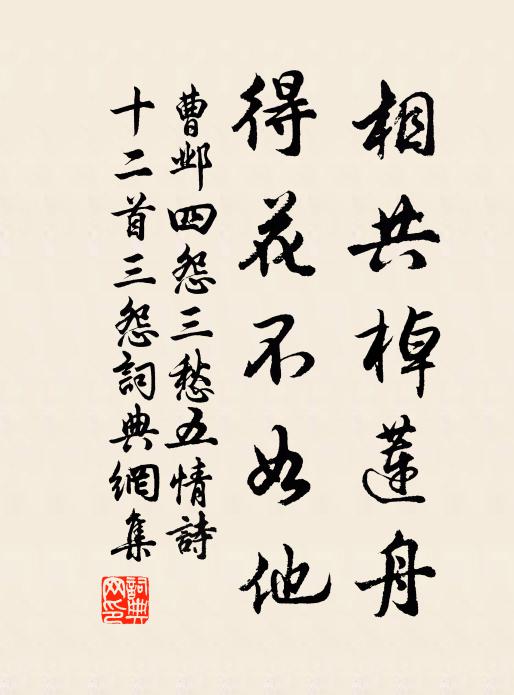 相共棹蓮舟
得花不如他
曹邺四怨三愁五情詩
十二首三怨詞典網集
詞典网印